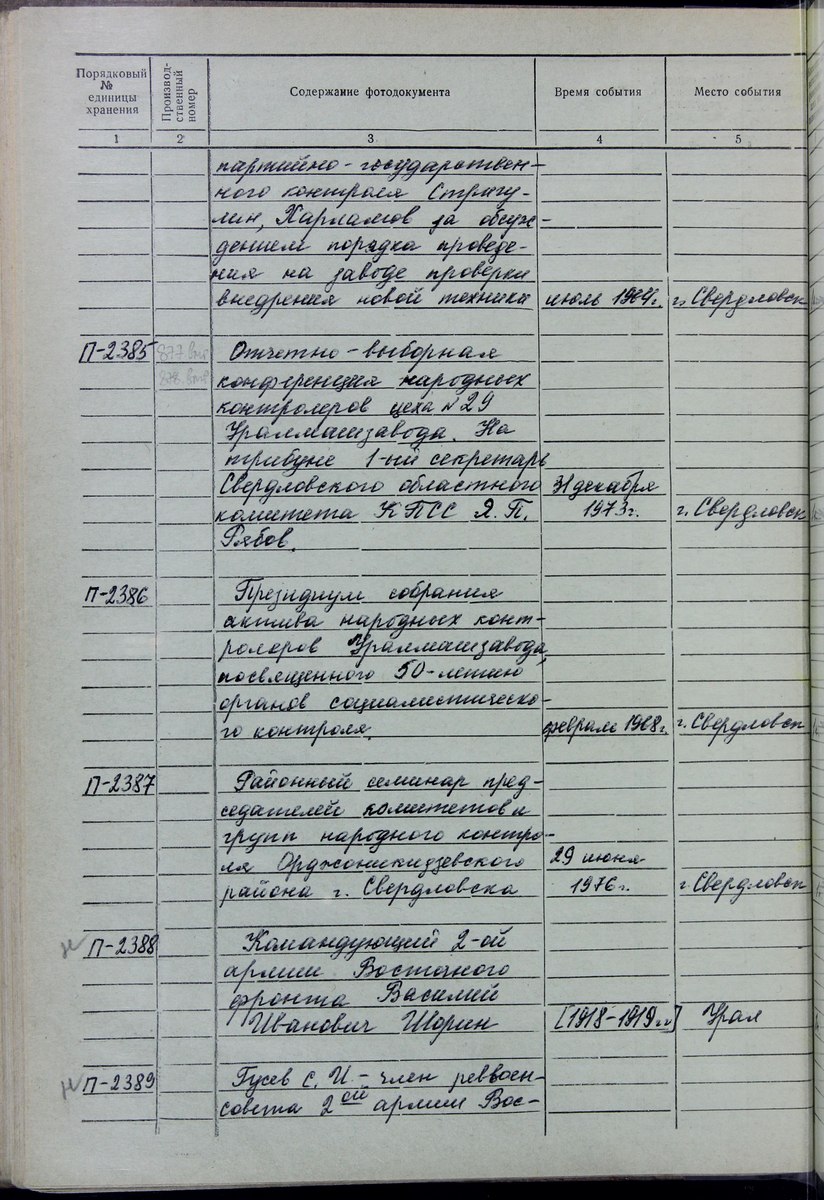 Порядковый
№
единицы
хранения
Производ-
ственный
номер
Содержание фотодокумента
Время события
Место события
1
2
3
4
5
партийно-государствен-
ного контроля Стригу-
лин, Харламов за обсуж-
дением порядка проведе-
ния на заводе проверки
внедрения новой техники
июль 1964г.
г. Свердловск
П-2385
Отчетно-выборная
конференция народных
контролеров цеха №29
Уралмашзавода. На
трибуне 1-ый секретарь
Свердловского областного
31 декабря
комитета КПСС Я.П.
1973г.
г. Свердловск
Рябов.
П-2386
Президиум собрания
актива народных конт-
ролеров Уралмашзавода,
посвященного 50-летию
органов социалистическо-
го контроля.
февраль 1968г.
г. Свердловск
П-2387
Районный семинар пред-
седателей комитетов и
групп народного контро-
ля Орджоникидзевского
29 июня
района г. Свердловска
1976г.
г. Свердловск
П-2388
Командующий 2-ой
армии Восточного
фронта Василий
Иванович Шорин
[1918-1919гг]
Урал
П-2389
Гусев С.И. - член реввоен-
совета 2ой армии Вос-